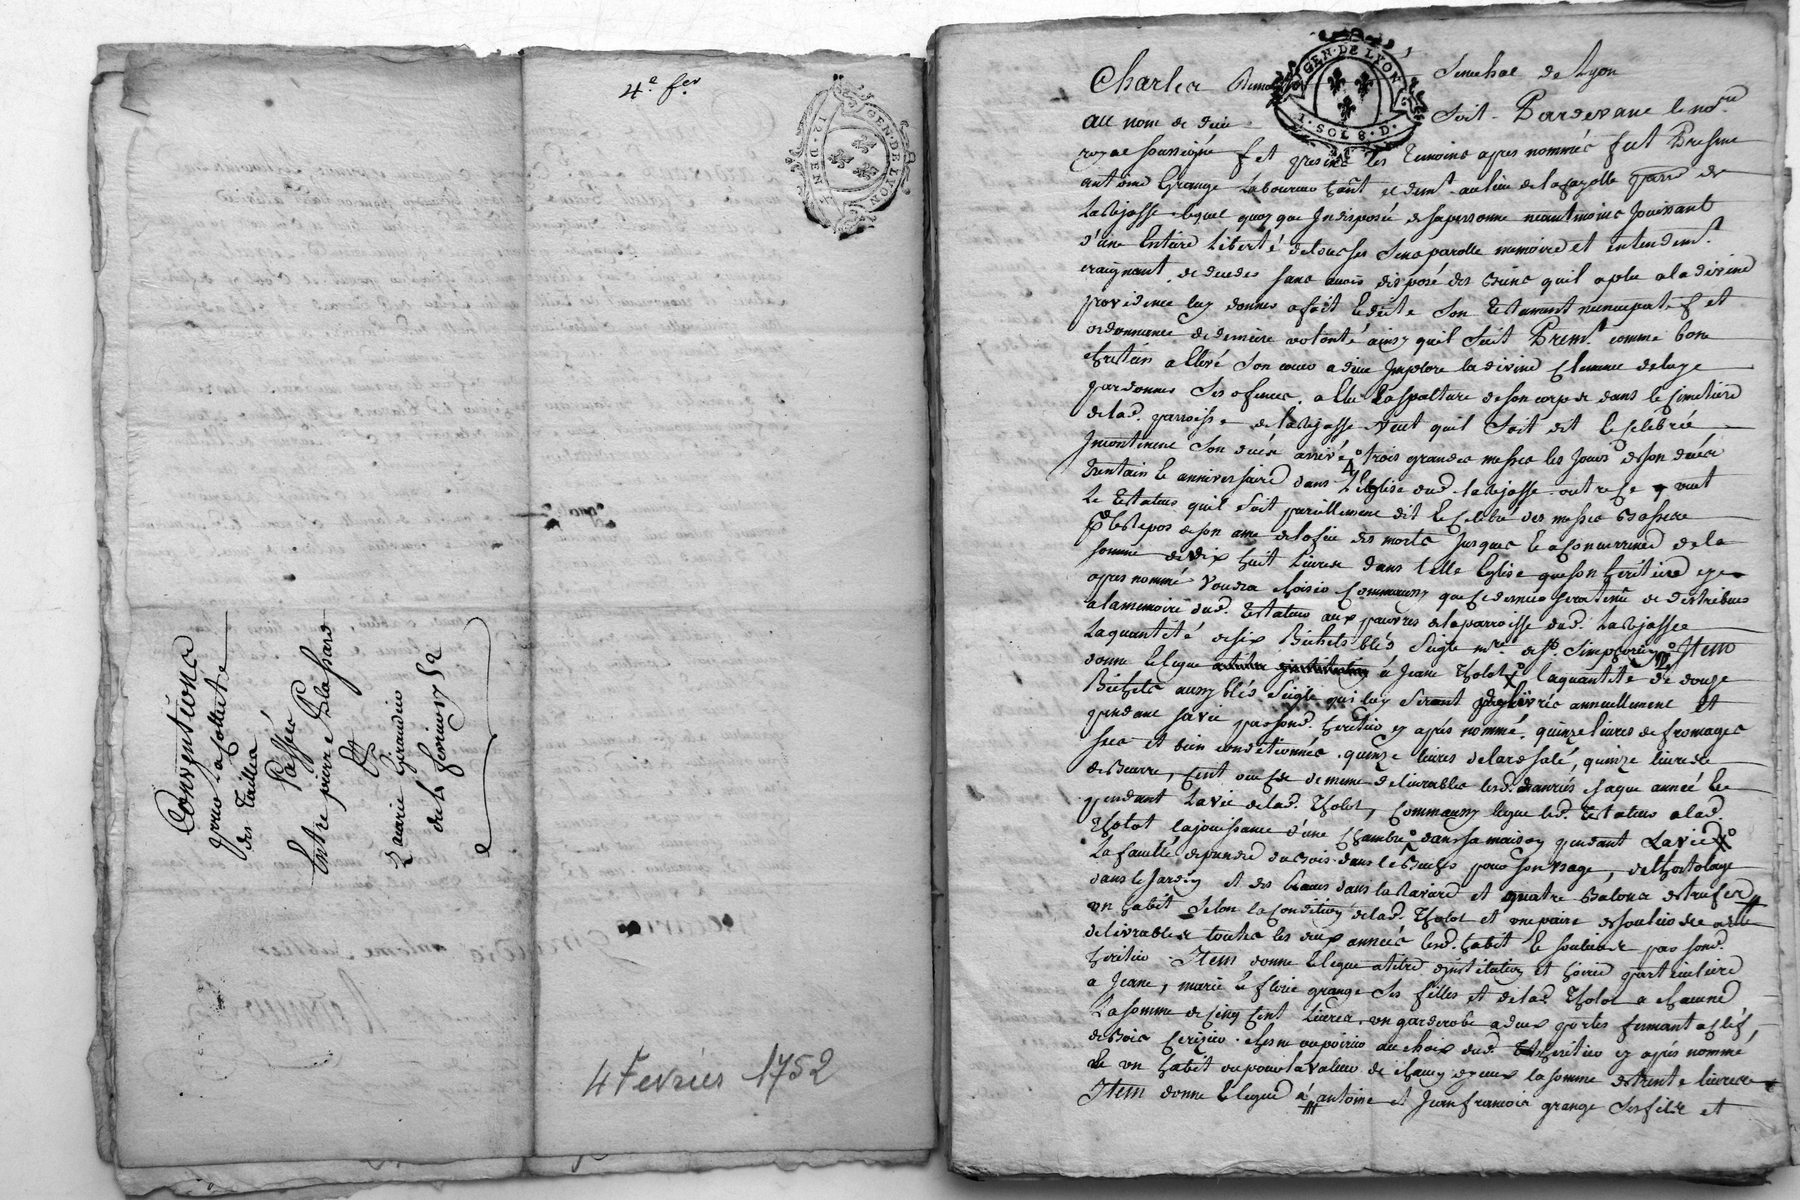 4.e fer
GEN. DE LYON
12 DEN.
Conventions
pour la Collecte
des Tailles
Passées
Entre pierre Blassard
Et
Zacarie Giraudier
du 4 fevrier 1752
4 Fevrier 1752
GEN. DE LYON
1. SOL 8. D.
Charles Senechal de Lyon
au nom de dieu Soit Pardevant le no.re
royal soussigné et presens les temoins apres nommés fut Presens
antoine Grange Laboureur ha.nt et dem.t au lieu de la fayolle parr. de
Larajasse lequel quoy que Indisposé de sa personne neantmoins Jouissant
d'une Entiere Liberté de tous ses Sens parolle memoire et entendem.t
craignant de deceder sans avoir disposé des biens quil a plu a la divine
providence luy donner a fait Et dicte Son testament nuncupatif et
ordonnance de derniere volonté ainsy quil suit Prem.t comme bon
chretien a Elevé Son coeur a dieu Imploré la divine Clemence de luy
pardonner Ses ofences, a Elu La sepulture de son corps dans le Cimetiere
de lad. parroisse de Larajasse Veut quil Soit dit Et Celebré
Incontinent Son decés arrivé trois grandes messes les Jours de son decés
trentain Et anniversaire dans l'Eglise dud. Larajasse outre Ce veut
Le testateur quil Soit pareillement dit Et Celebré des messes Basses
p.r le Repos de son ame de la fin des morts Jusques Et a Concurrence de la
somme de dix huit Livres dans telle Eglise que son heritiere cy
apres nommé Voudra choisir Comm'aussy que Ce dernier sera tenu de distribuer
a la memoire dud. testateur aux pauvres de la parroisse dud. Larajasse
La quantité de six Bichets bled Seigle m.re de S.t Simphorien Item
donne Et legue à Jeane Tholot la quantité de douze
Bichets aussy bled Seigle qui luy Seront delivrés annuellement Et
pendant sa vie par sond. heritier cy aprés nommé, quinze livres de fromages
secs et bien conditionnés, quinze livres de lard salé, quinze livres de
de Beurre, Cent oeufs de meme delivrables lesd. danrés chaque année Et
pendant La vie de lad. Tholot, Comm'aussy legue led. testateur a lad.
Tholot la jouissance d'une Chambre dans sa maison pendant La vie
La faculté de prendre du Bois dans le Bucher pour son usage, de l'hortolage
dans le Jardin et des Raves dans la Raviere et quatre
un habit Selon la Condition de lad. Tholot et une paire de souliers
delivrables toutes les deux années lesd. habit Et souliers par sond.
heritier. Item donne Et legue a titre d'institution et hoirie particuliere
a Jeane, marie Et fleurie grange Ses filles et de lad. Tholot a chacune
La somme de Cinq Cent Livres, un garderobe a deux portes fermant a Clef,
de Bois Cerizier, chesne ou poirier au choix dud. heritier cy aprés nommé,
Et un habit ou pour la valeur de chacun d'yceux la somme de trente livres
Item donne Et legue à antoine et Jean francois grange Ses fils et